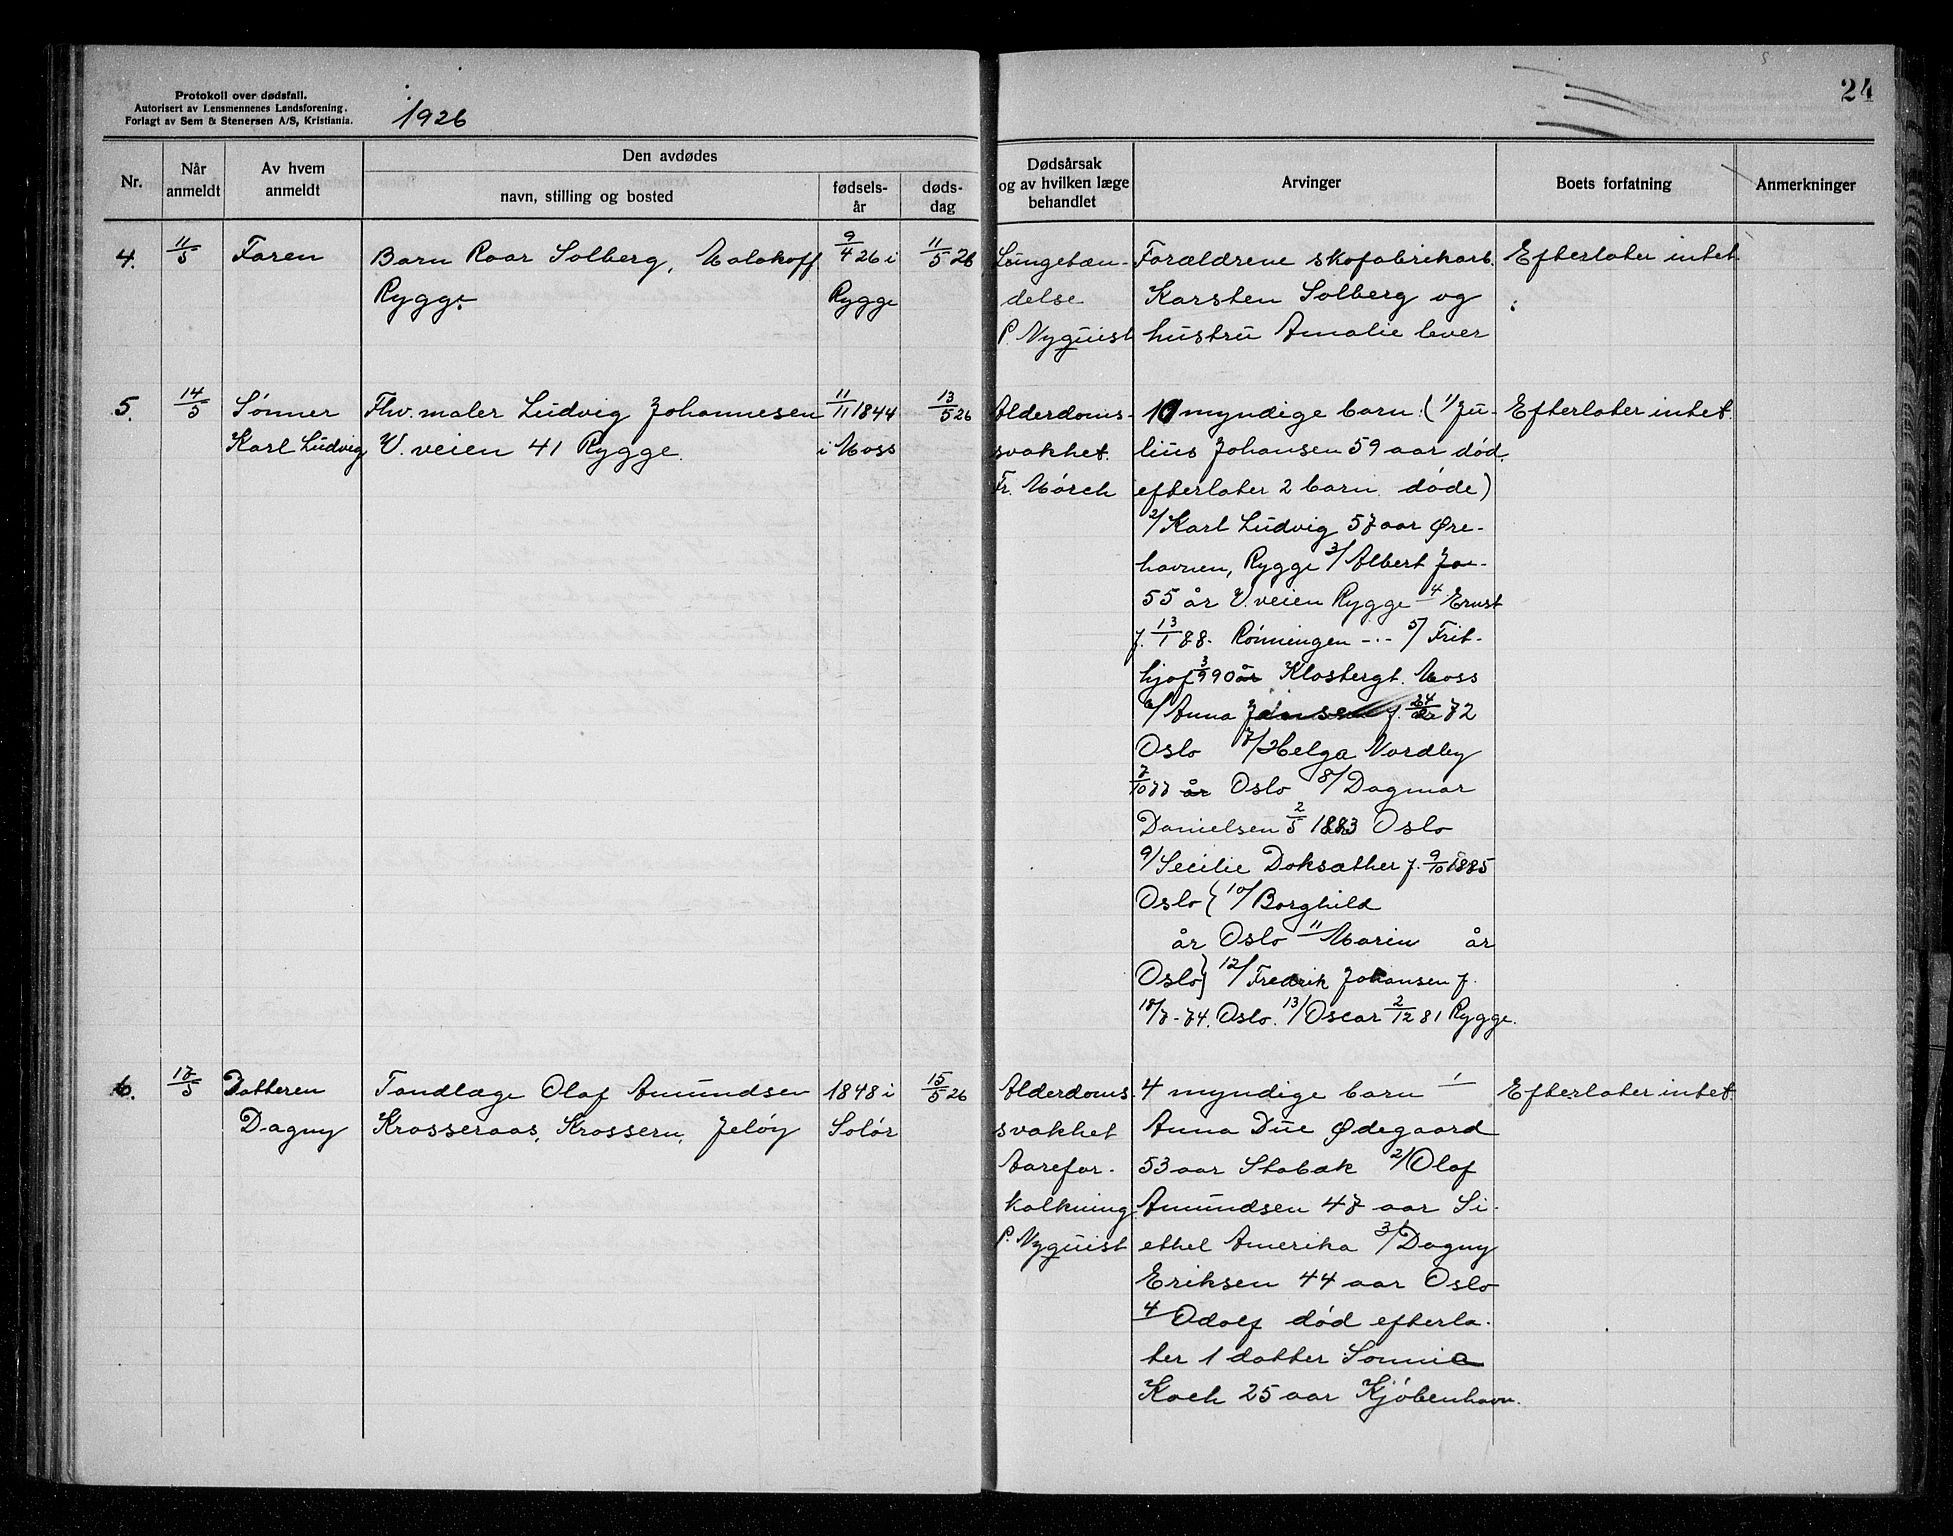 Protokoll over dødsfall.
Autorisert av Lensmennenes Landsforening.
Forlagt av Sem & Stenersen A/S, Kristiania.
1926
24
Nr.
Når anmeldt
Av hvem anmeldt
Den avdødes
navn, stilling og bosted
fødsels-år
døds-dag
Dødsårsak og av hvilken læge behandlet
Arvinger
Boets forfatning
Anmerkninger
4. 11/5 Faren Barn Roar Solberg, Malakoff 9/4 26 i 11/5 26
Rygge. Rygge
Lungebæn-
delse
P. Nyquist
Forældrene skofabrikarb.
Karsten Solberg og
hustru Amalie lever
Efterlater intet
5. 14/5 Sønner Fhv. maler Ludvig Johannesen 11/11 1844 13/5 26
Karl Ludvig V. veien 41 Rygge. i Moss
Alderdoms-
svakhet.
Fr. Mørch
10 myndige barn: (1/ Ju-
lius Johansen 59 aar død.
efterlater 2 barn døde)
2/ Karl Ludvig 57 aar Øre-
havnen, Rygge 3/ Albert Jo-
55 år V. veien Rygge 4 Ernst
f. 13/1 88. Rønningen -·- 5/ Frit-
hjof 3/9 90 år Klostergt. Moss
6/ Anna Jansen f. 24/2 72
Oslo 7/ Helga Nordby
7/10 77 år Oslo 8/ Dagmar
Danielsen 2/5 1883 Oslo
9/ Secilie Doksæther f. 9/10 1885
Oslo { 10/ Borghild
år Oslo 11 Marin år
Oslo} 12/ Fredrik Johansen f.
18/7-74. Oslo. 13/ Oscar 2/12 81 Rygge.
Efterlater intet.
6. 17/5 Datteren Tandlæge Olaf Amundsen 1848 i 15/5 26
Dagny Krosseraas, Krossern, Jeløy Solør
Alderdoms.
svakhet
Aarefor-
kalkning
P. Nyquist
4 myndige barn 1/
Anna Due Ødegaard
53 aar Stabæk 2/ Olaf
Amundsen 47 aar Si-
ethel Amerika 3/ Dagny
Eriksen 44 aar Oslo
4 Odolf død efterla-
ter 1 datter Sonnie
Koch 25 aar Kjøbenhavn.
Efterlater intet